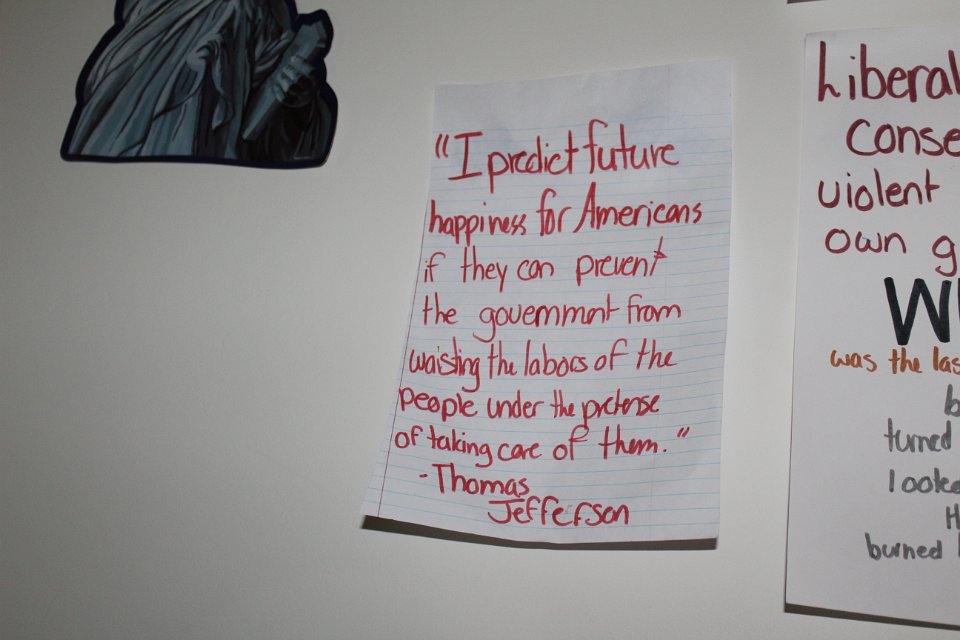 "I predict future
happiness for Americans
if they can prevent
the government from
waisting the labors of the
people under the pretense
of taking care of them."
-Thomas
Jefferson
Liberal
Conse
violent
own g
W
was the las
turned
looke
H
burned